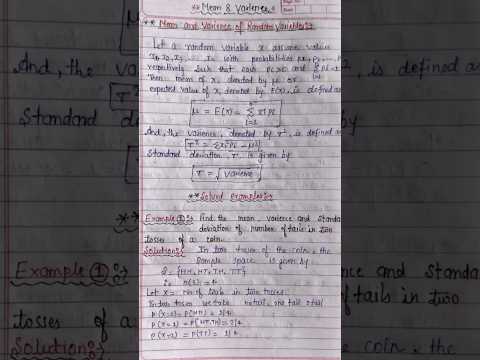 **Mean & Varience.*
** Mean and Variance of Random Variables:-
Let a random variable x assume values
x1, x2, x3... with probabilities
respectively such that each pi≥0 and
Then mean of x, denoted by μ or
expected value of x, denoted by E(x), is defined as
μ = E(x) = Σ xi pi
i=1
And, the varience, denoted by σ², is defined as
σ² = Σxi²pi - μ²
Standard deviation σ is given by
σ = √varience
**Solved Examples:-
Example ①:- Find the mean, varience and standard
deviation of number of tails in two
tosses of a coin.
Solution:- In two tosses of the coin, the
sample space is given by
S = {HH, HT, TH, TT}
n(S) = 4
Let X = no. of tails in two tosses.
In two tosses we take no tail, one tail
P(X=0) = P(HH) = 1/4
P(X=1) = P(HT,TH) = 2/4
P(X=2) = P(TT) = 1/4